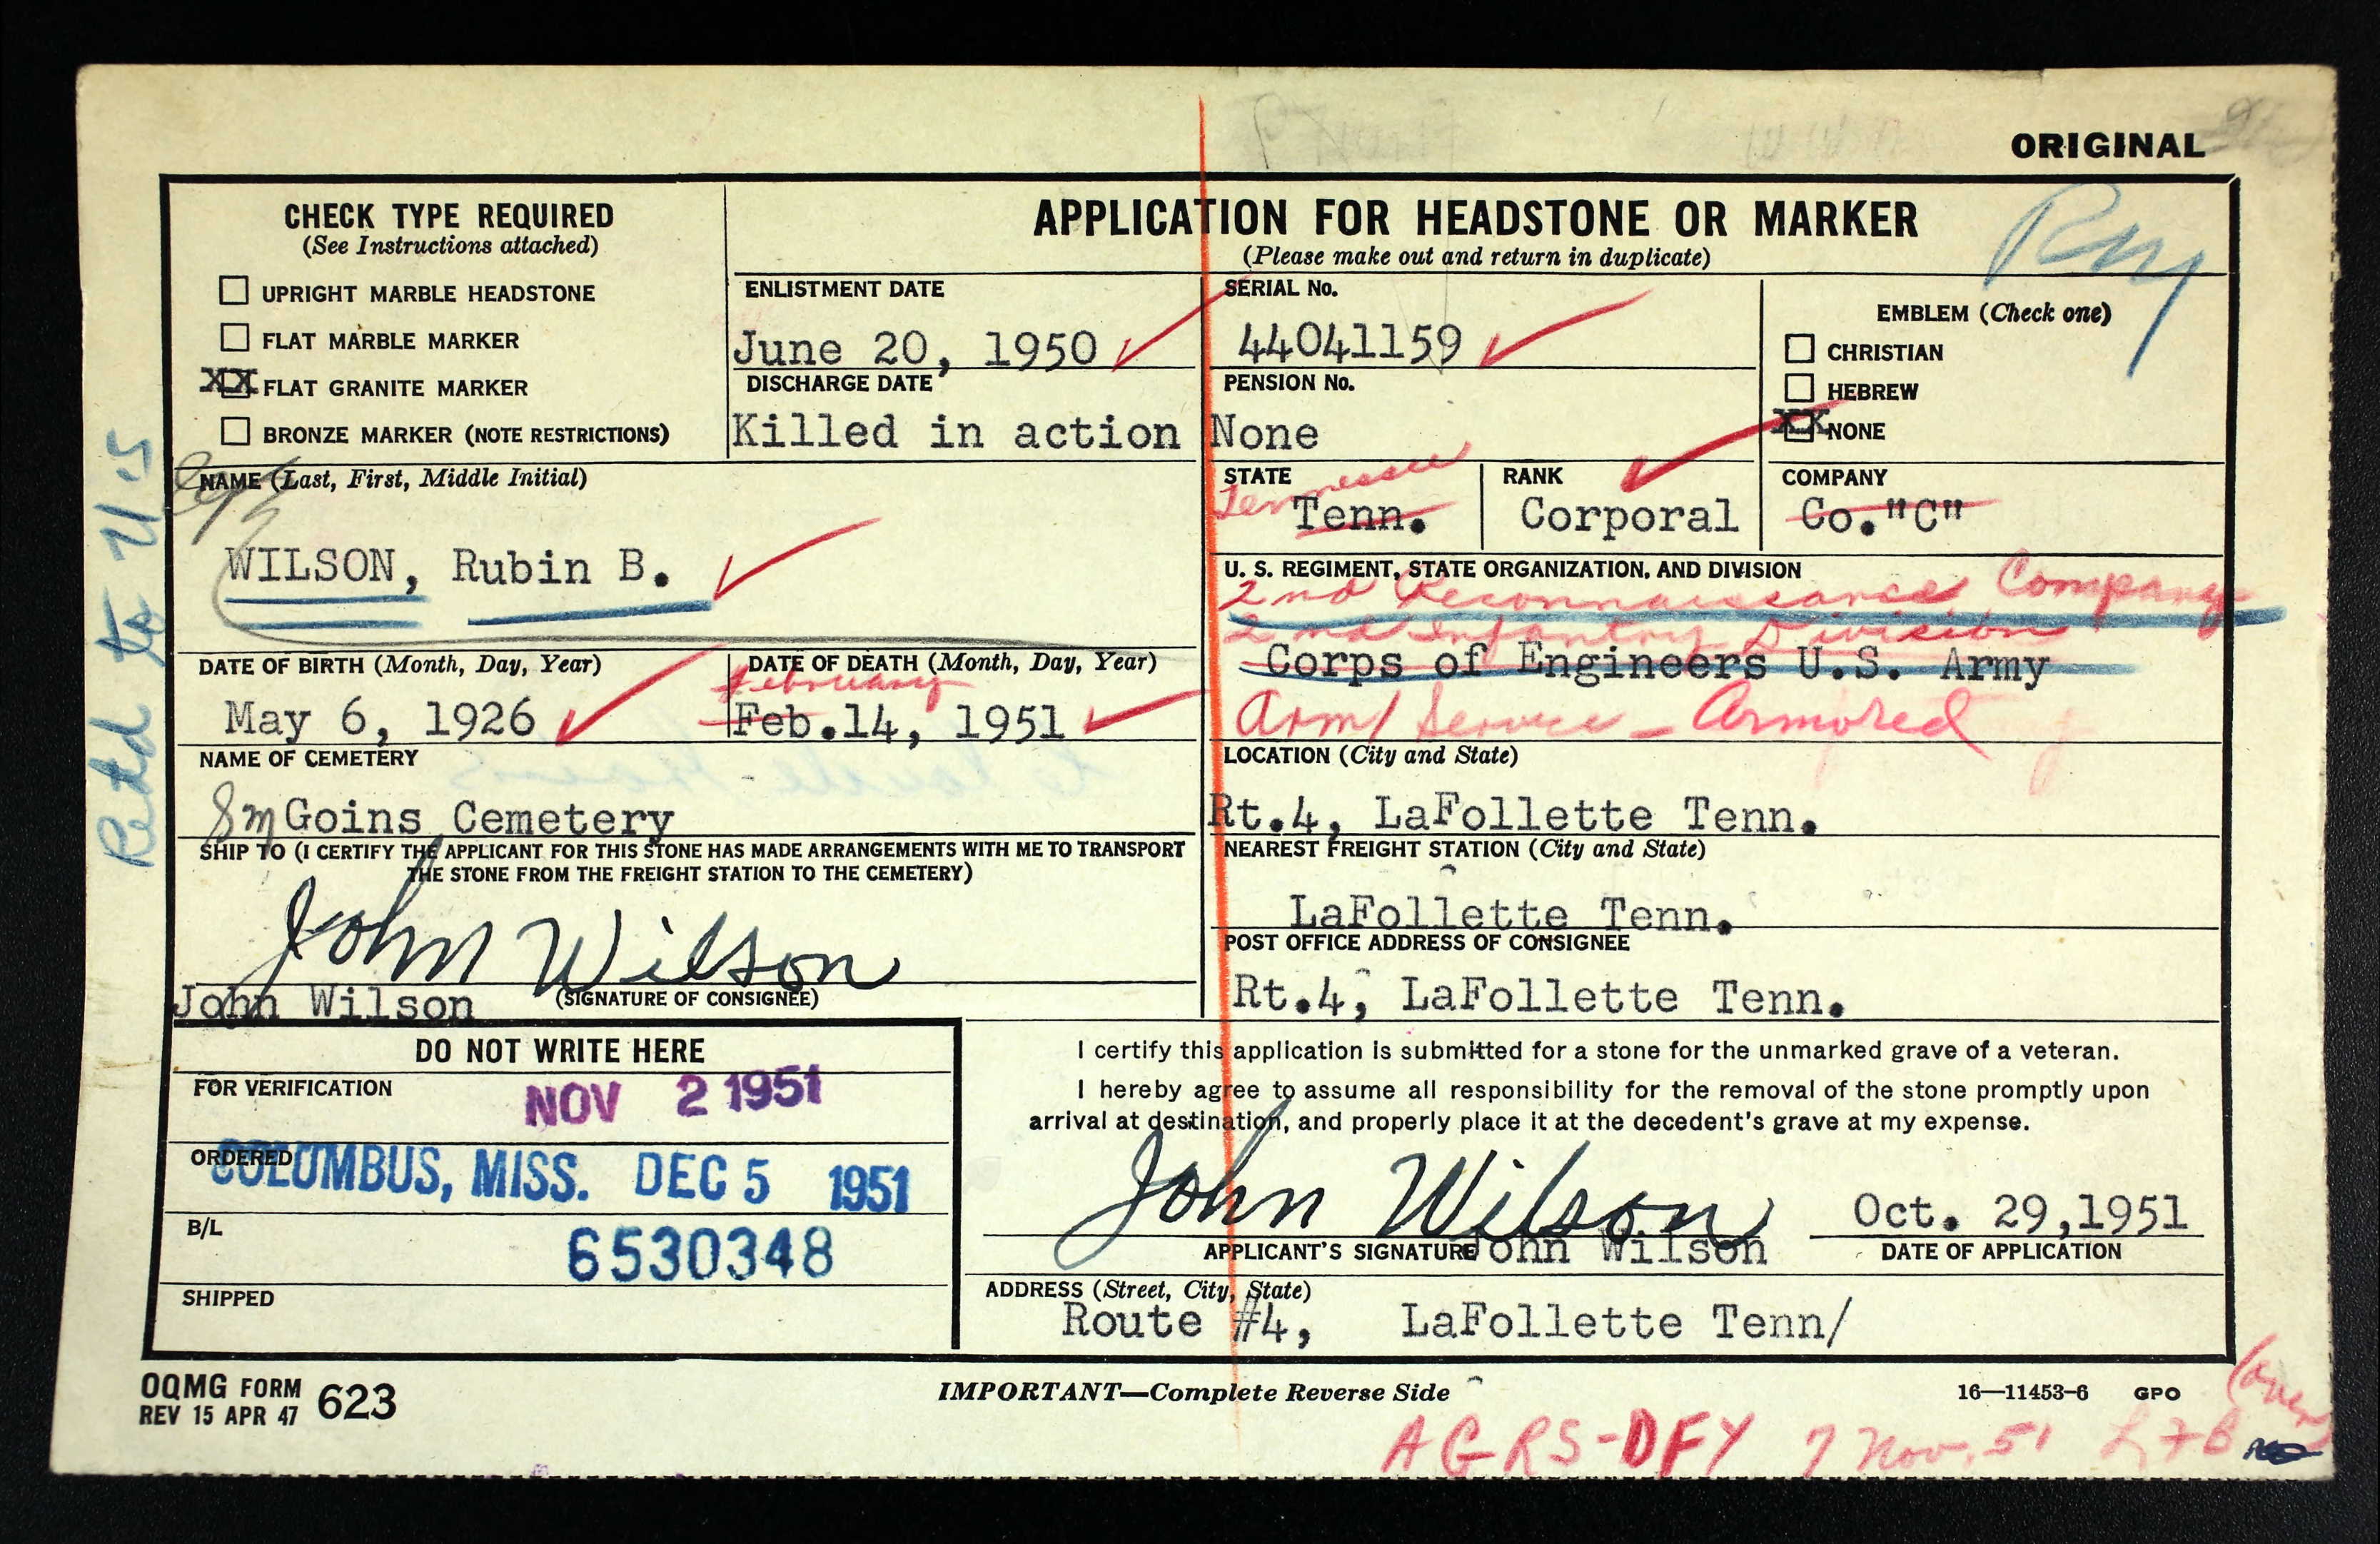 ORIGINAL
CHECK TYPE REQUIRED
(See Instructions attached)
UPRIGHT MARBLE HEADSTONE
FLAT MARBLE MARKER
XX FLAT GRANITE MARKER
BRONZE MARKER (NOTE RESTRICTIONS)
APPLICATION FOR HEADSTONE OR MARKER
(Please make out and return in duplicate)
ENLISTMENT DATE
June 20, 1950
DISCHARGE DATE
Killed in action
SERIAL No.
44041159
PENSION No.
None
EMBLEM (Check one)
CHRISTIAN
HEBREW
XX NONE
NAME (Last, First, Middle Initial)
WILSON, Rubin B.
STATE
Tennessee
Tenn.
RANK
Corporal
COMPANY
Co."C"
U. S. REGIMENT, STATE ORGANIZATION, AND DIVISION
2nd Reconnaissance Company
2nd Infantry Division
Corps of Engineers U.S. Army
Arm/Service - Armored
DATE OF BIRTH (Month, Day, Year)
May 6, 1926
DATE OF DEATH (Month, Day, Year)
February
Feb.14, 1951
NAME OF CEMETERY
Goins Cemetery
LOCATION (City and State)
Rt.4, LaFollette Tenn.
SHIP TO (I CERTIFY THE APPLICANT FOR THIS STONE HAS MADE ARRANGEMENTS WITH ME TO TRANSPORT
THE STONE FROM THE FREIGHT STATION TO THE CEMETERY)
John Wilson
John Wilson (SIGNATURE OF CONSIGNEE)
NEAREST FREIGHT STATION (City and State)
LaFollette Tenn.
POST OFFICE ADDRESS OF CONSIGNEE
Rt.4, LaFollette Tenn.
DO NOT WRITE HERE
FOR VERIFICATION
NOV 2 1951
ORDERED
COLUMBUS, MISS. DEC 5 1951
B/L
6530348
SHIPPED
I certify this application is submitted for a stone for the unmarked grave of a veteran.
I hereby agree to assume all responsibility for the removal of the stone promptly upon
arrival at destination, and properly place it at the decedent's grave at my expense.
John Wilson
Oct. 29,1951
APPLICANT'S SIGNATURE John Wilson
DATE OF APPLICATION
ADDRESS (Street, City, State)
Route #4, LaFollette Tenn/
OQMG FORM 623
REV 15 APR 47
IMPORTANT—Complete Reverse Side
16—11453-6 GPO
(over)
AGRS-DFY 7 Nov. 51 L7B
Retd to U.S